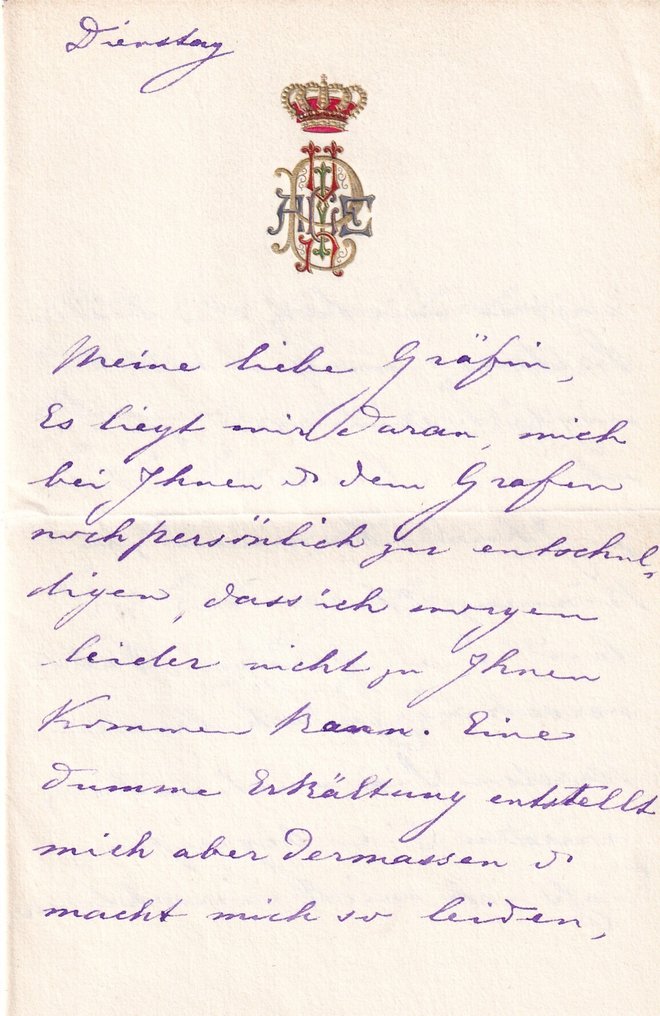 Dienstag
Meine liebe Gräfin,
Es liegt mir daran, mich
bei Ihnen & dem Grafen
noch persönlich zu entschul-
digen, dass ich morgen
leider nicht zu Ihnen
kommen kann. Eine
dumme Erkältung entstellt
mich aber dermassen &
macht mich so leiden,